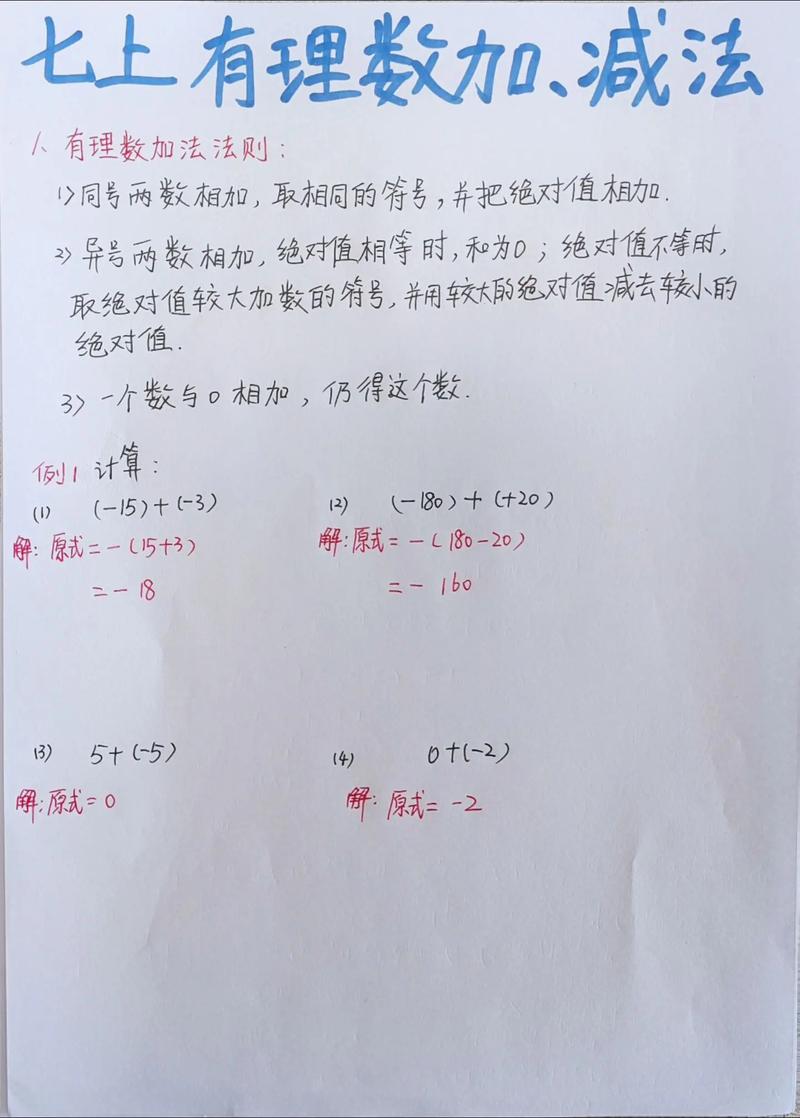 七上有理数加、减法
1、有理数加法法则：
1>同号两数相加，取相同的符号，并把绝对值相加.
2>异号两数相加，绝对值相等时，和为0；绝对值不等时，
取绝对值较大加数的符号，并用较大的绝对值减去较小的
绝对值.
3>一个数与0相加，仍得这个数.
例1 计算：
(1) (-15)+(-3)
(2) (-180)+(+20)
解：原式=-(15+3)
解：原式=-(180-20)
=-18
=-160
(3) 5+(-5)
(4) 0+(-2)
解：原式=0
解：原式=-2